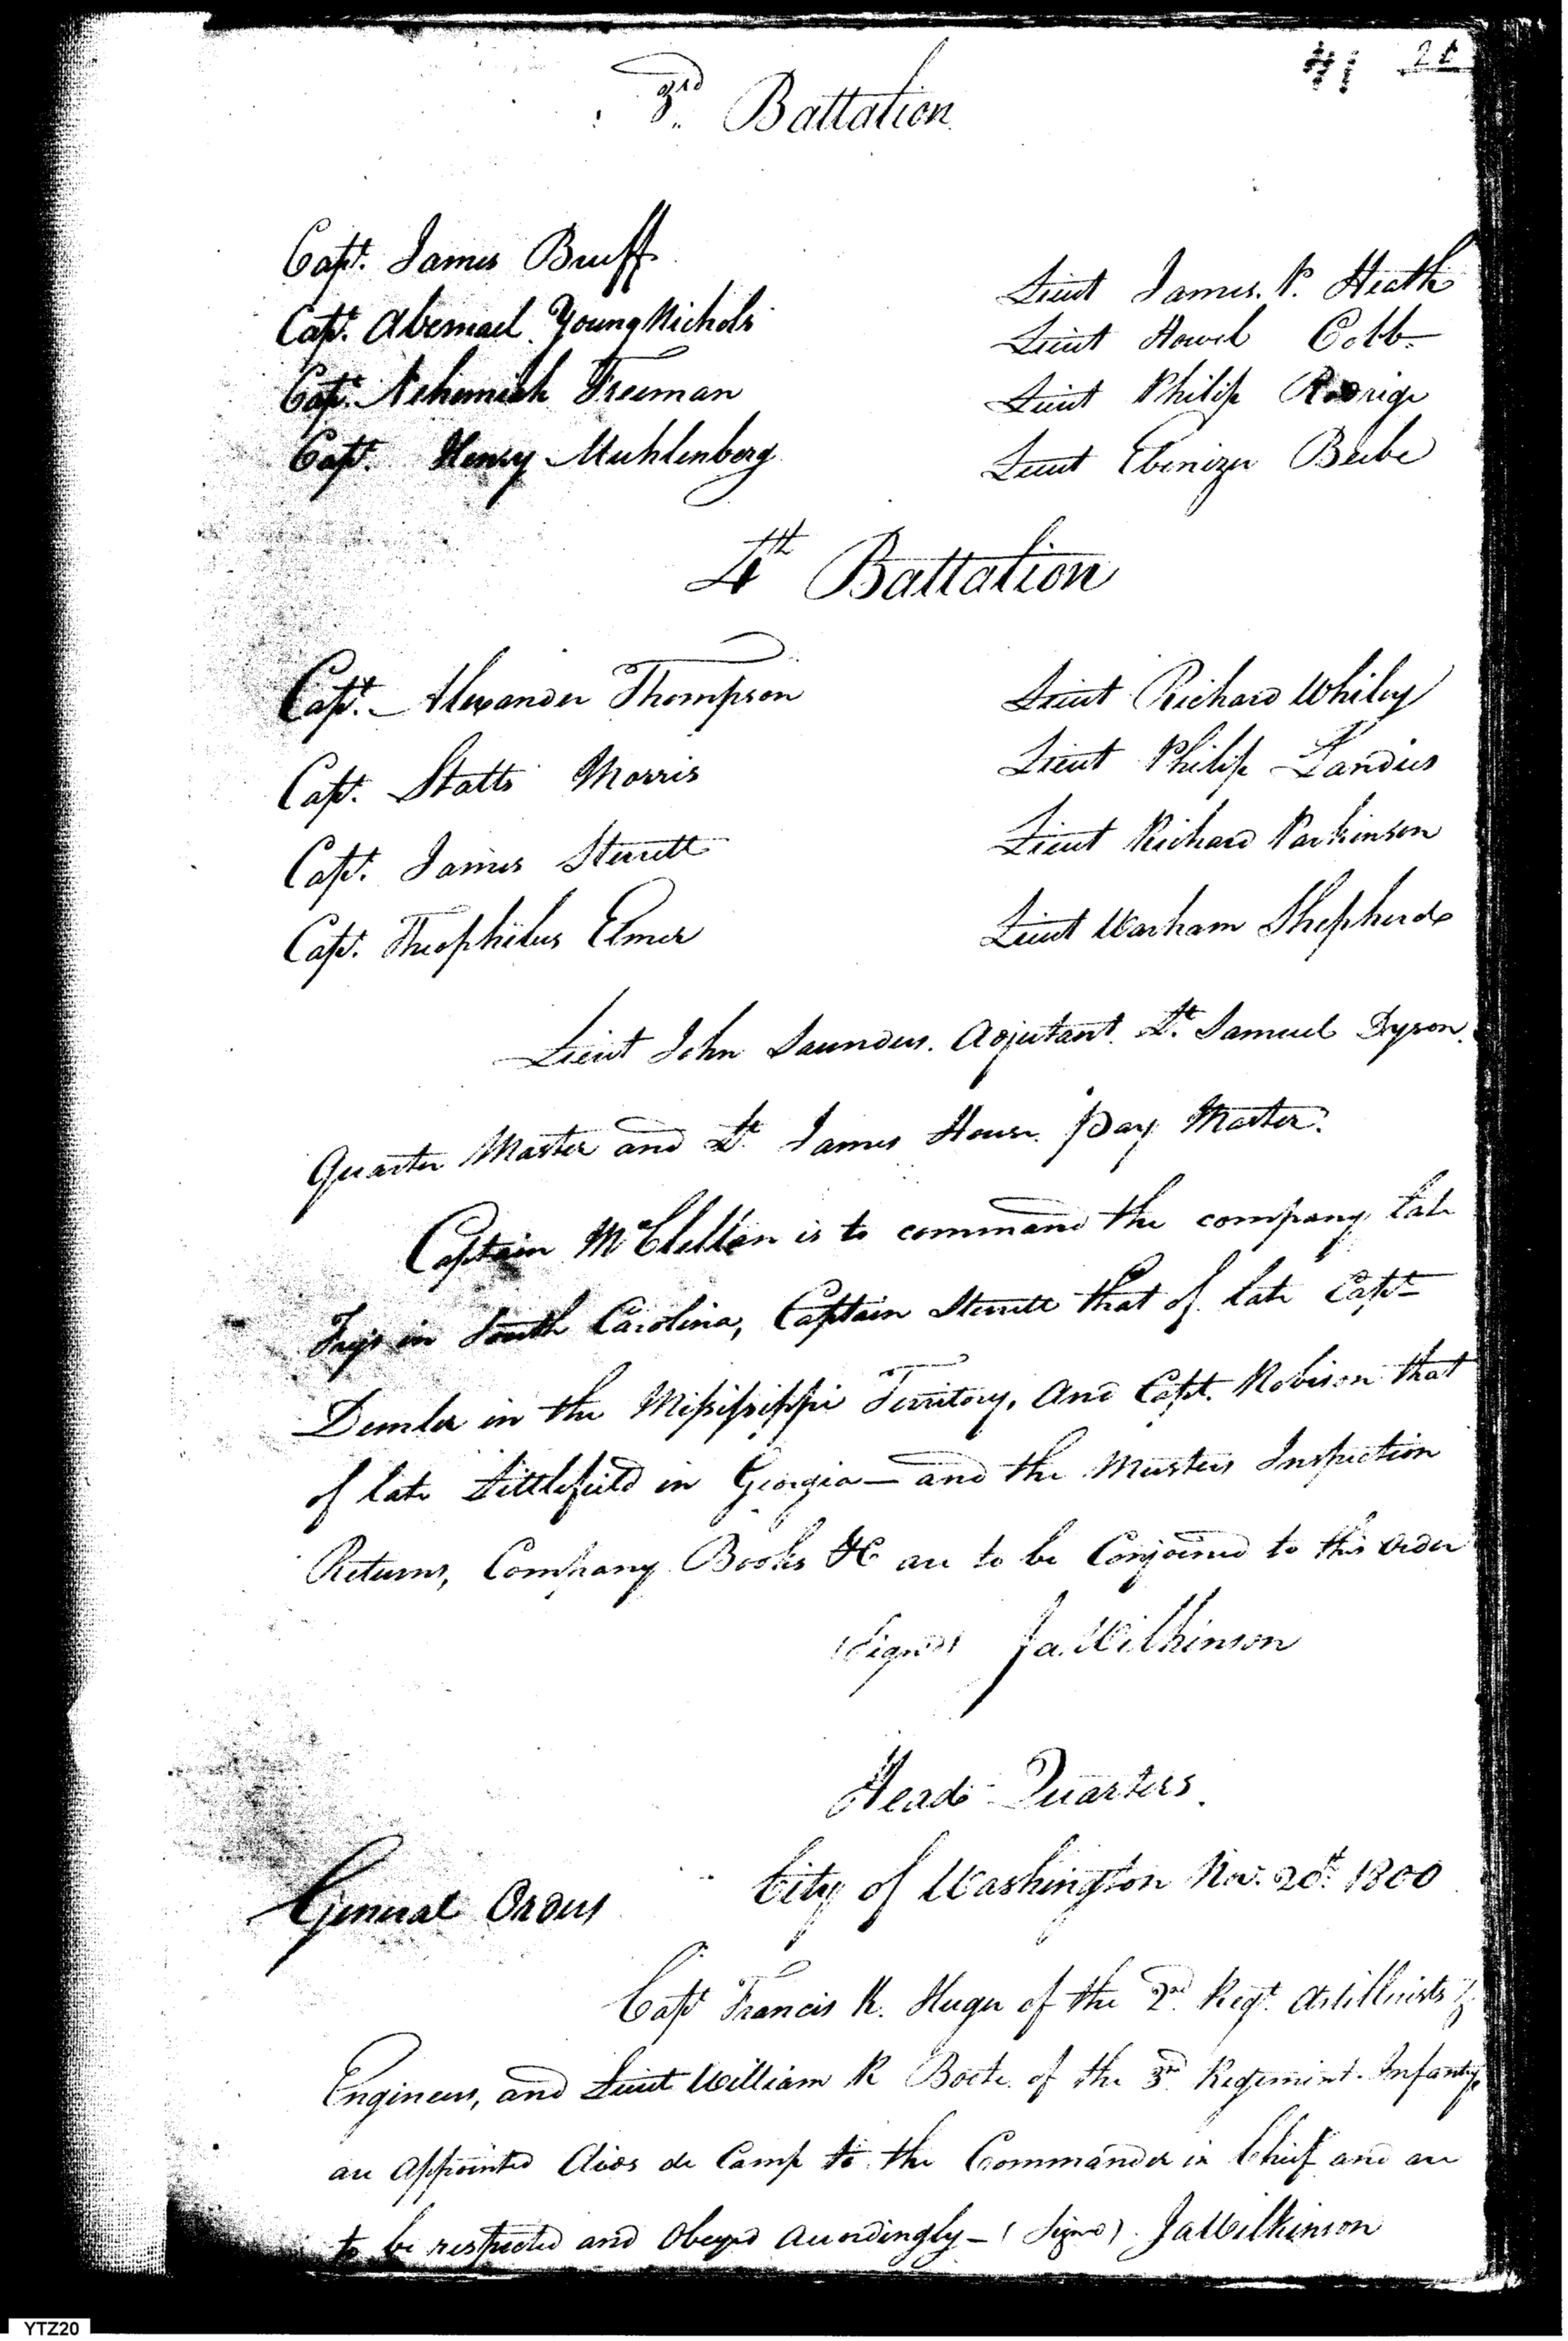 3rd Battalion
Capt. James Bruff
Lieut James. P. Heath
Capt. Abemael Young Nichols
Lieut Howel Cobb
Capt. Nehemiah Freeman
Lieut Philip Rodrigu
Capt. Henry Muhlenberg
Lieut Ebenizer Beebe
4th Battalion
Capt. Alexander Thompson
Lieut Richard Whiley
Capt. Statts Morris
Lieut Philip Landius
Capt. James Sterrett
Lieut Richard Parkinson
Capt. Theophilus Elmer
Lieut Warham Shepherd
Lieut John Saunders. Adjutant. Lt. Samuel Dyson.
Quarter Master and Lt. James House. Pay Master.
Captain McClellan is to command the company late
in South Carolina, Captain Sterrett that of late Capt
Demler in the Missisippi Territory, and Capt. Robison that
of late Littlefield in Georgia — and the Musters Inspection
Returns, Company Books &C are to be Conjoined to this order
(Signed) Ja. Wilkinson
Head Quarters.
City of Washington Nov. 20t. 1800
General Orders
Capt Francis K. Huger of the 2nd Regt. Artillerists &
Engineers, and Lieut William R Boote of the 3rd Regiment. Infantry
are appointed Aids de Camp to the Commander in Chief and are
to be respected and Obeyed accordingly — (Signed). Ja Wilkinson
YTZ20